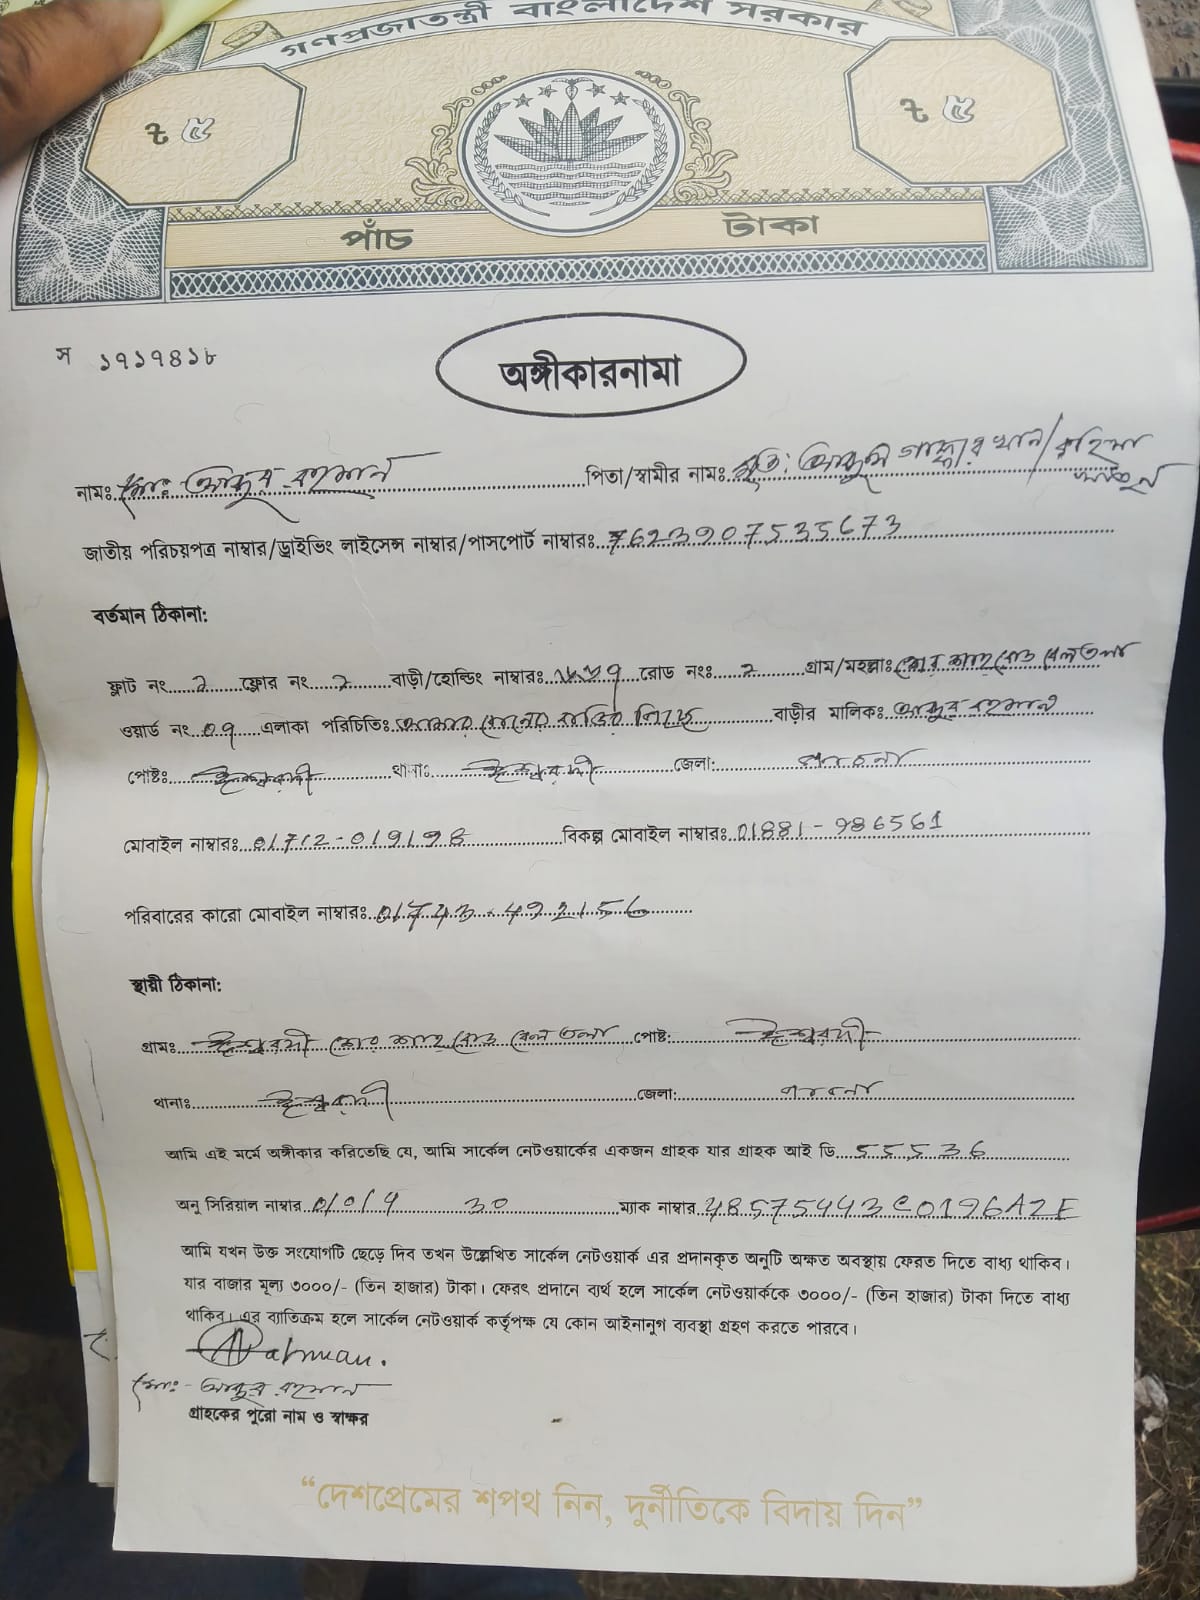 গণপ্রজাতন্ত্রী বাংলাদেশ সরকার
৳ ৫ ৳ ৫
পাঁচ টাকা
স ১৭১৭৪১৮
অঙ্গীকারনামা
নামঃ মোঃ আব্দুর রহমান পিতা/স্বামীর নামঃ মৃত: আব্দুল গাফ্ফার খান/রাহিমা খাতুন
জাতীয় পরিচয়পত্র নাম্বার/ড্রাইভিং লাইসেন্স নাম্বার/পাসপোর্ট নাম্বারঃ 7623907535673
বর্তমান ঠিকানা:
ফ্লাট নং ২ ফ্লোর নং ২ বাড়ী/হোল্ডিং নাম্বারঃ রোড নংঃ ২ গ্রাম/মহল্লাঃ শের শাহ রোড বেলতলা
ওয়ার্ড নং ০৭ এলাকা পরিচিতিঃ বাড়ীর মালিকঃ আব্দুর রহমান
পোষ্টঃ ঈশ্বরদী থানাঃ ঈশ্বরদী জেলা: পাবনা
মোবাইল নাম্বারঃ 01712-019198 বিকল্প মোবাইল নাম্বারঃ 01881-986561
পরিবারের কারো মোবাইল নাম্বারঃ 01743-492156
স্থায়ী ঠিকানা:
গ্রামঃ ঈশ্বরদী শের শাহ রোড বেলতলা পোষ্ট: ঈশ্বরদী
থানাঃ ঈশ্বরদী জেলা: পাবনা
আমি এই মর্মে অঙ্গীকার করিতেছি যে, আমি সার্কেল নেটওয়ার্কের একজন গ্রাহক যার গ্রাহক আই ডি 55536
অনু সিরিয়াল নাম্বার 30 ম্যাক নাম্বার 48575443C0196A2E
আমি যখন উক্ত সংযোগটি ছেড়ে দিব তখন উল্লেখিত সার্কেল নেটওয়ার্ক এর প্রদানকৃত অনুটি অক্ষত অবস্থায় ফেরত দিতে বাধ্য থাকিব।
যার বাজার মূল্য ৩০০০/- (তিন হাজার) টাকা। ফেরৎ প্রদানে ব্যর্থ হলে সার্কেল নেটওয়ার্ককে ৩০০০/- (তিন হাজার) টাকা দিতে বাধ্য
থাকিব। এর ব্যতিক্রম হলে সার্কেল নেটওয়ার্ক কর্তৃপক্ষ যে কোন আইনানুগ ব্যবস্থা গ্রহণ করতে পারবে।
ARahman.
মোঃ- আব্দুর রহমান
গ্রাহকের পুরো নাম ও স্বাক্ষর
“দেশপ্রেমের শপথ নিন, দুর্নীতিকে বিদায় দিন”